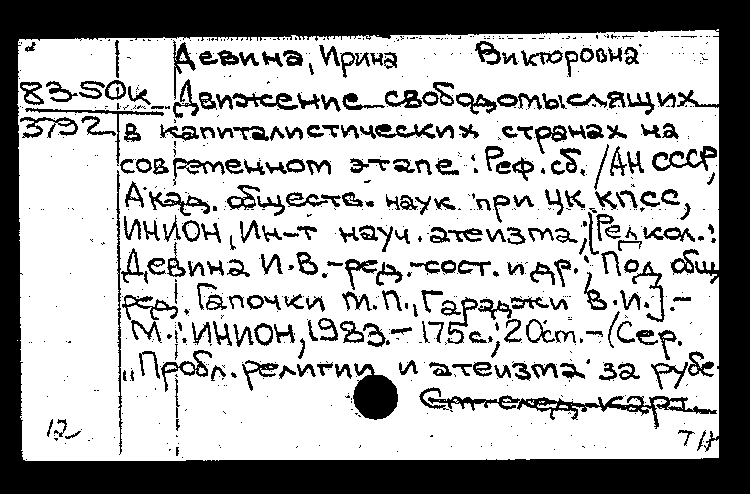 Девина, Ирина Викторовна
83-50к Движение свободомыслящих
3792 в капиталистических странах на
современном этапе : Реф. сб. / АН СССР,
Акад. обществ. наук при ЦК КПСС,
ИНИОН, Ин-т науч. атеизма; [Редкол.:
Девина И.В.-ред.-сост. и др.; Под общ
ред. Гапочки М.П., Гараджи В.И.].-
М.: ИНИОН, 1983.- 175 с.; 20 см.- (Сер.
„Пробл. религии и атеизма за рубе-
См. след. карт.
12